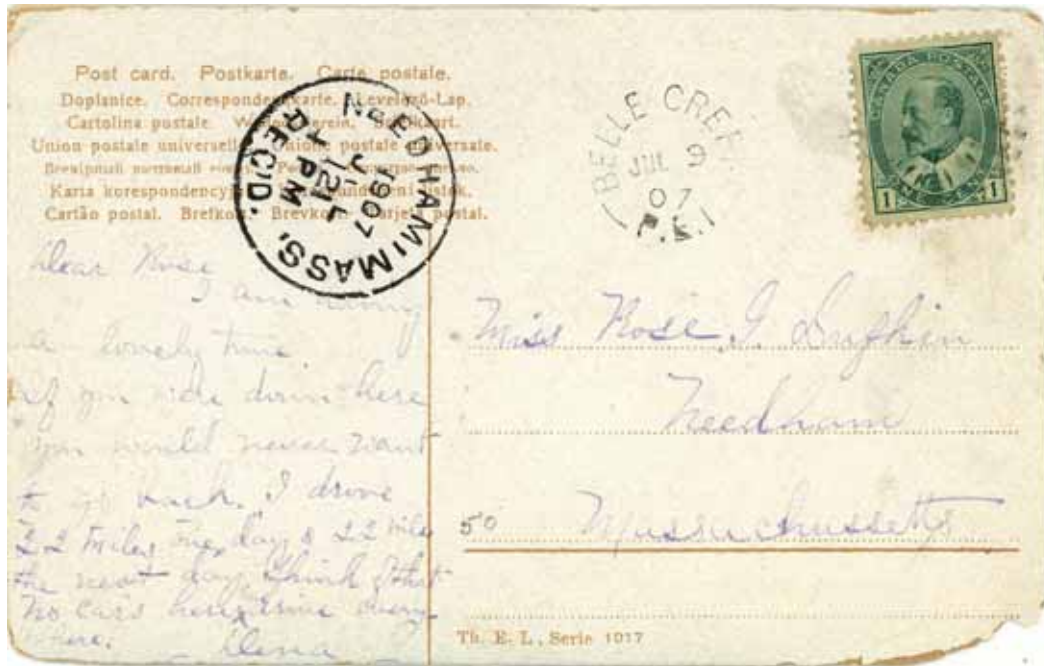 Post card. Postkarte. Carte postale.
Doplanice. Correspondenzkarte. Levelező-Lap.
Cartolina postale.
Union postale universelle. Unione postale universale.
Karta korespondencyjna
Cartão postal. Brefkort. Brevkort. Tarjeta postal.
NEEDHAM, MASS.
JUL
12
1907
PM
REC'D.
BELLE CREEK
JUL 9
07
P.E.I
CANADA POSTAGE
1 CENTS 1
Dear Rose
I am having
a lovely time
if you were down here
you would never want
to go back. I drove
22 miles one day & 22 miles
the next day, think of that
no cars here, drive every
where.
Miss Rose I. Lufkin
Needham
50
Massachussetts
Th. E. L. Serie 1017